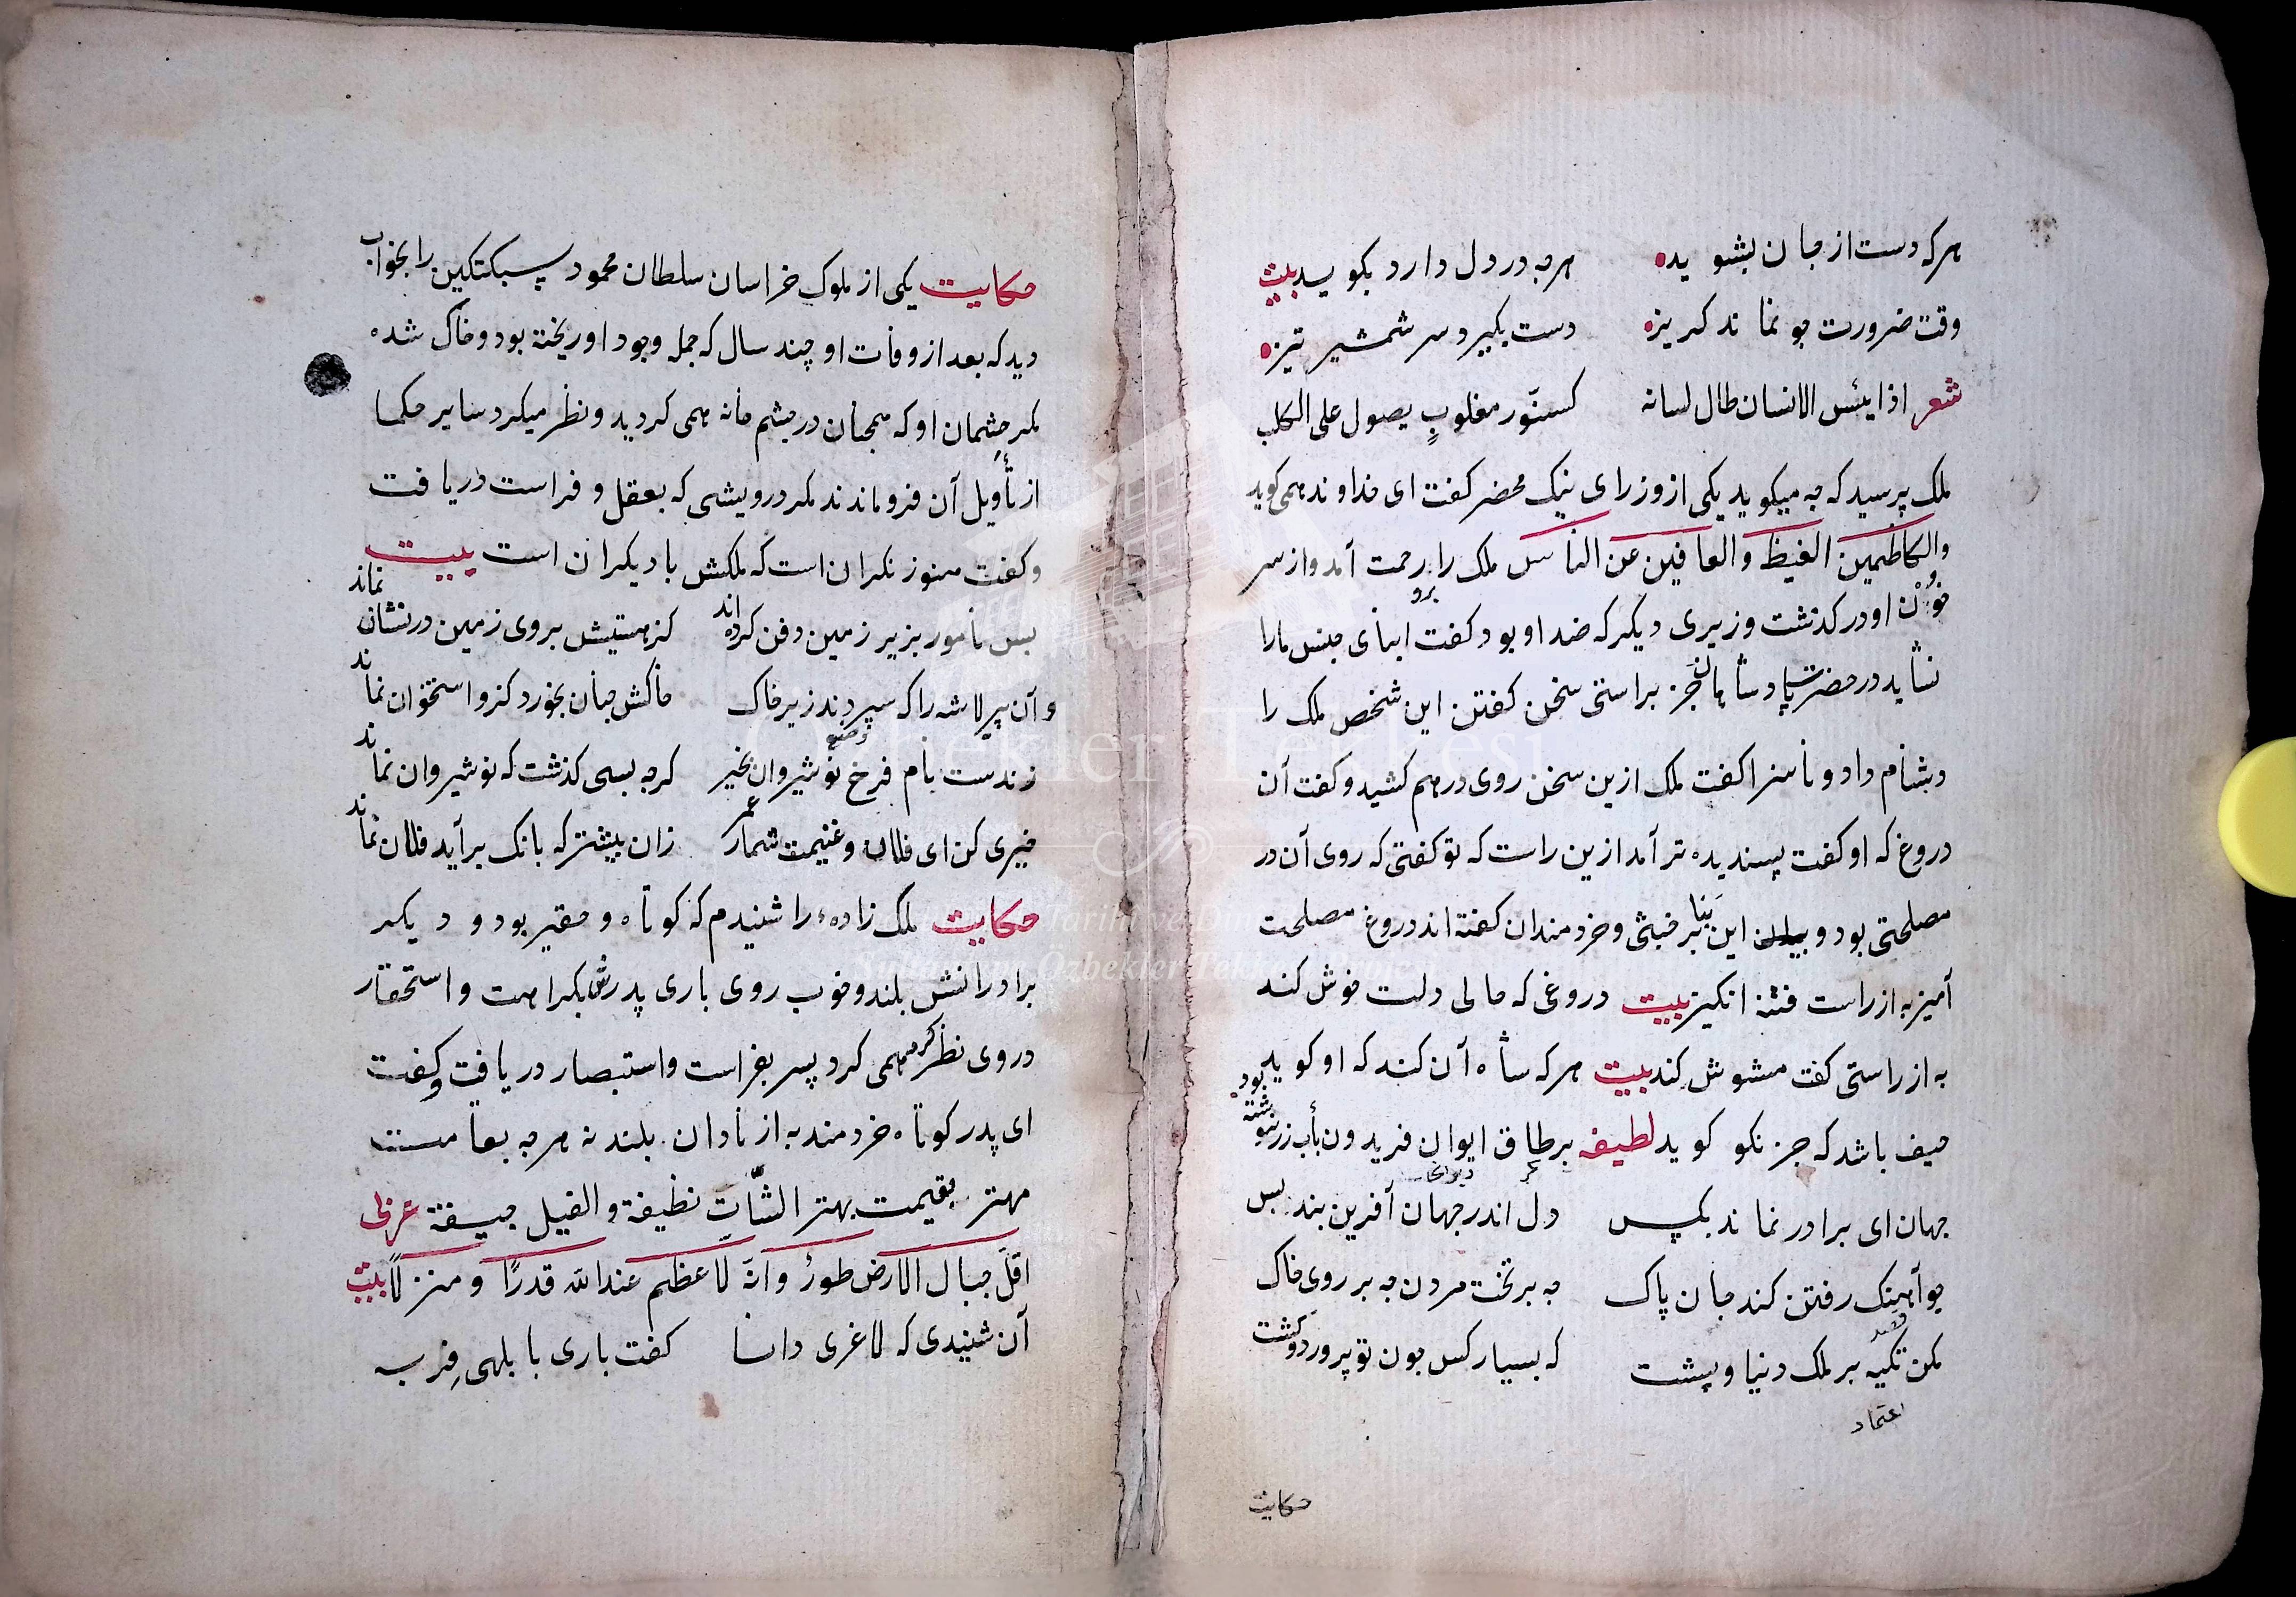 هرکه دست از جان بشوید هرچه در دل دارد بکوید بیت
وقت ضرورت چو نماند کریز دست بکیرد سر شمشیر تیز
شعر اذا یئس الانسان طال لسانه کسنّور مغلوبٍ یصول علی الکلب
ملک پرسید که چه میکوید یکی از وزرای نیک محضر کفت ای خداوند همی کوید
والکاظمین الغیظ والعافین عن الناس ملک را برو رحمت آمد و از سر
خون او در کذشت وزیری دیکر که ضد او بود کفت ابنای جنس مارا
نشاید در حضرت پادشاهان جز براستی سخن کفتن این شخص ملک را
دشنام داد و ناسزا کفت ملک ازین سخن روی درهم کشید و کفت آن
دروغ که او کفت پسندیده تر آمد ازین راست که تو کفتی که روی آن در
مصلحتی بود و بنای این بر خبثی و خردمندان کفته اند دروغ مصلحت
آمیز به از راست فتنه انکیز بیت دروغی که حالی دلت خوش کند
به از راستی کفت مشوش کند بیت هرکه شاه آن کند که او کوید
حیف باشد که جز نکو کوید لطیفه بر طاق ایوان فریدون بآب زر نبوشته بود
جهان ای برادر نماند بکس دل اندر جهان آفرین بند بس
چو آهنک رفتن کند جان پاک چه بر تخت مردن چه بر روی خاک
قصد
مکن تکیه بر ملک دنیا و پشت که بسیار کس چون تو پرورد و کشت
اعتماد
حکایت
حکایت یکی از ملوک خراسان سلطان محمود سبکتکین را بخواب
دید که بعد از وفات او چند سال که جمله وجود او ریخته بود و خاک شده
مکر چشمان او که همچنان در چشم خانه همی کردید و نظر میکرد سایر حکما
از تأویل آن فروماندند مکر درویشی که بعقل و فراست دریافت
و کفت هنوز نکران است که ملکش با دیکران است بیت
بس نامور بزیر زمین دفن کرده اند کز هستیش بروی زمین در نشان نماند
و آن پیر لاشه را که سپردند زیر خاک خاکش چنان بخورد کزو استخوان نماند
زندست نام فرخ نوشیروان بخیر کرچه بسی کذشت که نوشیروان نماند
خیری کن ای فلان و غنیمت شمار عمر زان پیشتر که بانک برآید فلان نماند
حکایت ملک زاده را شنیدم که کوتاه و حقیر بود و دیکر
برادرانش بلند و خوب روی باری پدرش بکراهت و استحقار
در وی نظر همی کرد پسر بفراست و استبصار دریافت و کفت
ای پدر کوتاه خردمند به از نادان بلند نه هرچه بقامت
مهتر بقیمت بهتر الشّات نظیفة والفیل جیفة عربی
اقلّ جبال الارض طورٌ وانّه لاعظم عند الله قدرًا ومنزلًا بیت
آن شنیدی که لاغری دانا کفت باری با بلهی فربه